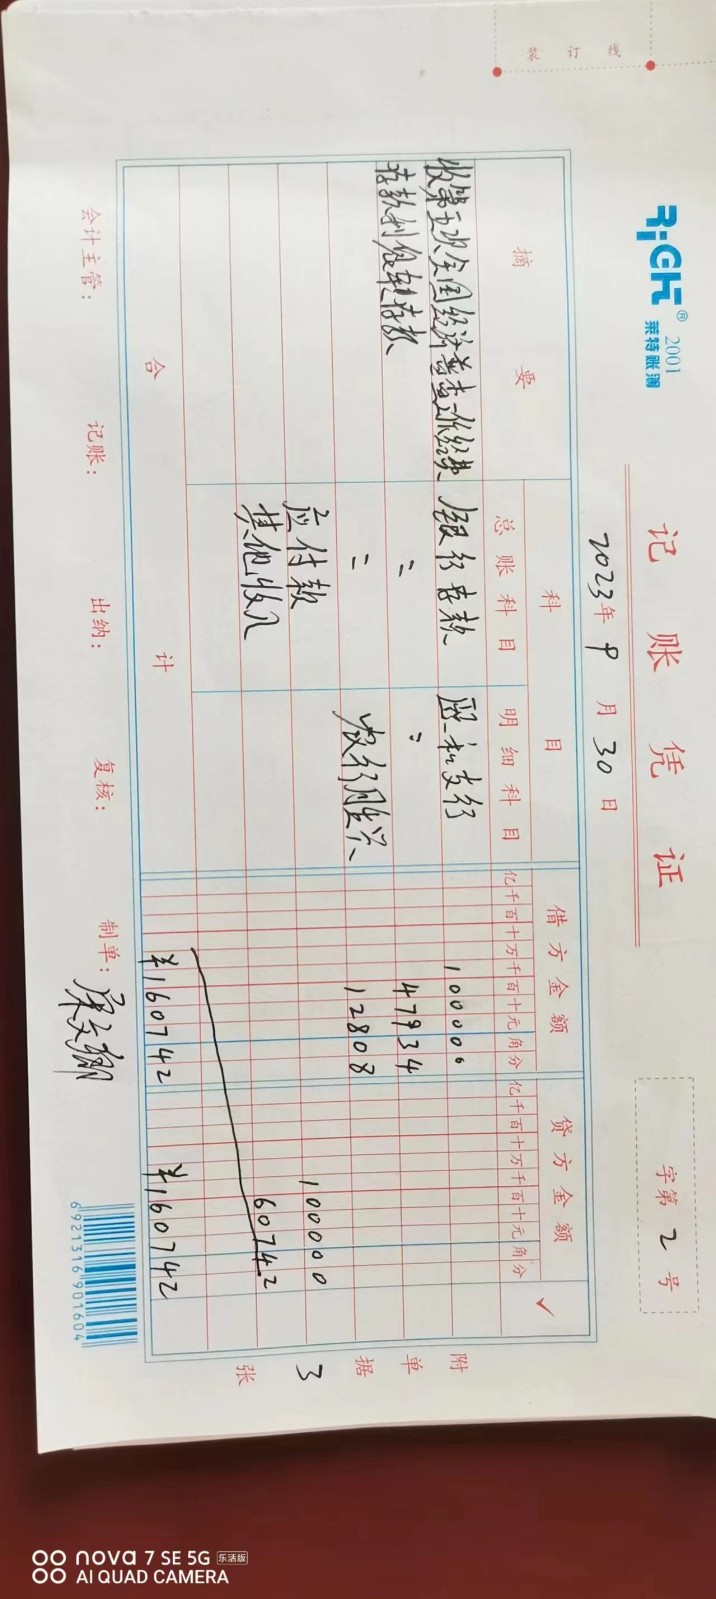 装订线
RiGHT® 2001
莱特账簿
记账凭证
2023年9月30日
字第2号
摘要 科目 借方金额 贷方金额 ✓
总账科目 明细科目 亿千百十万千百十元角分 亿千百十万千百十元角分
收第五次全国经济普查工作经费 银行存款 支行 100000
存款利息转存款 〃 〃 47934
〃 农行胜兴 12808
应付款 100000
其他收入 60742
合计 ¥160742 ¥160742
附单据3张
会计主管: 记账: 出纳: 复核: 制单:
6921316901604
nova 7 SE 5G 乐活版
AI QUAD CAMERA